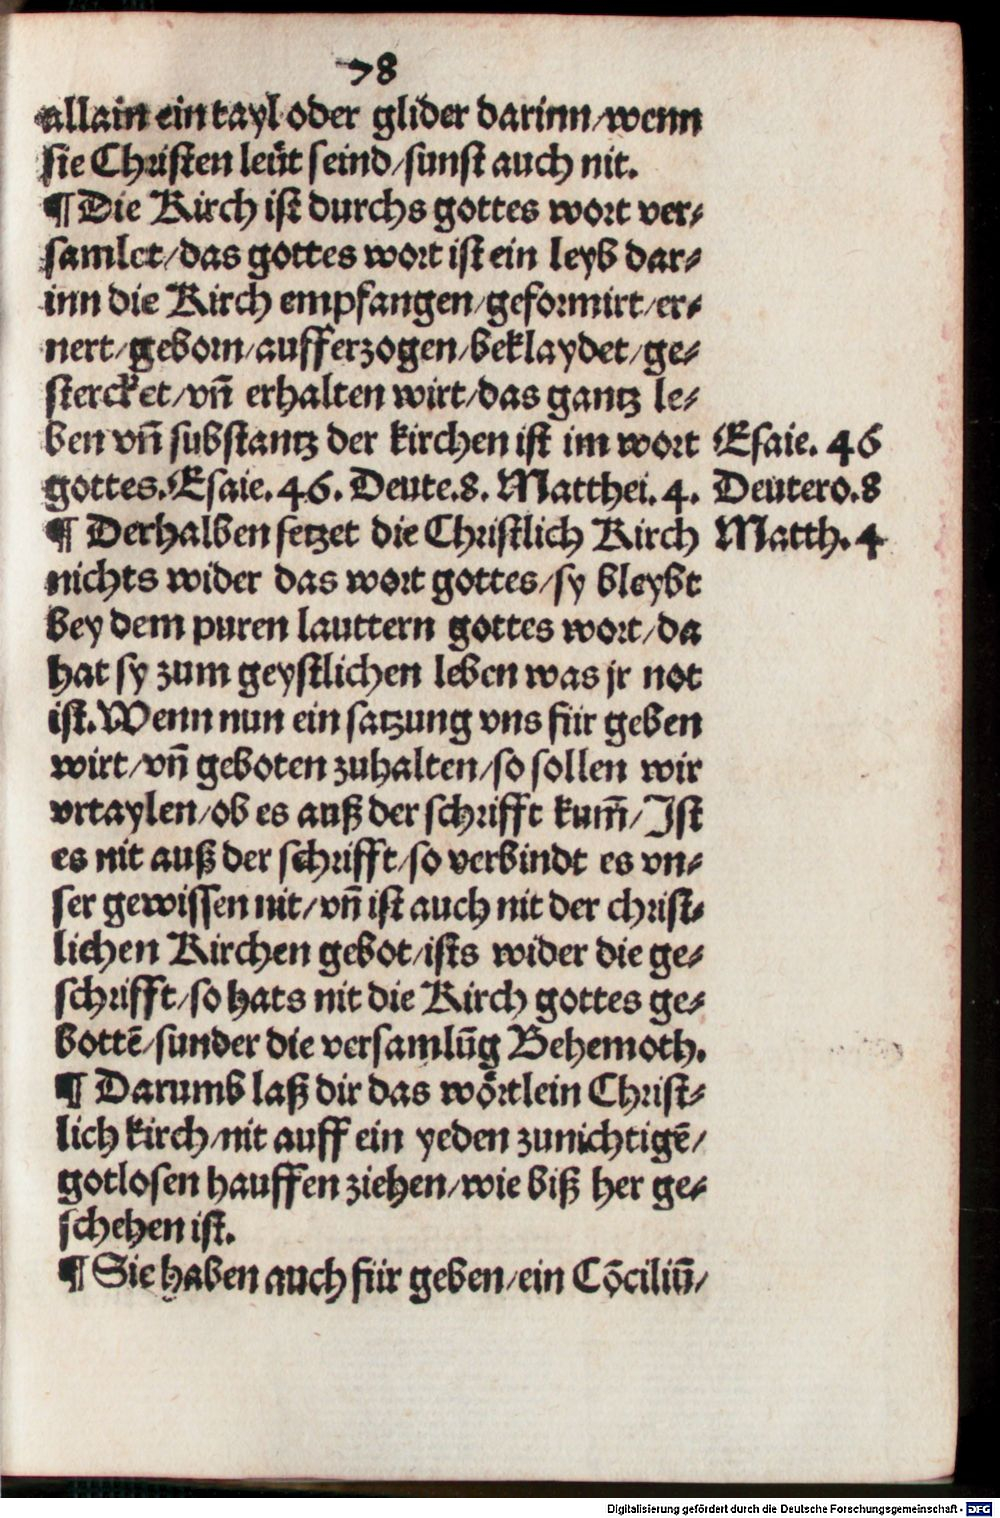 78
allain ein tayl oder glider darinn/wenn
sie Christen leüt seind/sunst auch nit.
¶ Die Kirch ist durchs gottes wort ver⸗
samlet/das gottes wort ist ein leyb dar⸗
inn die Kirch empfangen/geformirt/er⸗
nert/geborn/aufferzogen/beklaydet/ge⸗
stercket/vñ erhalten wirt/das gantz le⸗
ben vñ substantz der kirchen ist im wort Esaie. 46
gottes.Esaie.46. Deute.8. Matthei.4. Deutero.8
¶ Derhalben setzet die Christlich Kirch Matth.4
nichts wider das wort gottes/sy bleybt
bey dem puren lauttern gottes wort/da
hat sy zum geystlichen leben was jr not
ist.Wenn nun ein satzung vns für geben
wirt/vñ geboten zuhalten/so sollen wir
vrtaylen/ob es auß der schrifft kum̃/Ist
es nit auß der schrifft/so verbindt es vn⸗
ser gewissen nit/vñ ist auch nit der christ⸗
lichen Kirchen gebot/ists wider die ge⸗
schrifft/so hats nit die Kirch gottes ge⸗
bottē/sunder die versamlūg Behemoth.
¶ Darumb laß dir das wörtlein Christ⸗
lich kirch/nit auff ein yeden zunichtigē/
gotlosen hauffen ziehen/wie biß her ge⸗
schehen ist.
¶ Sie haben auch für geben/ein Cōciliū/
Digitalisierung gefördert durch die Deutsche Forschungsgemeinschaft - DFG